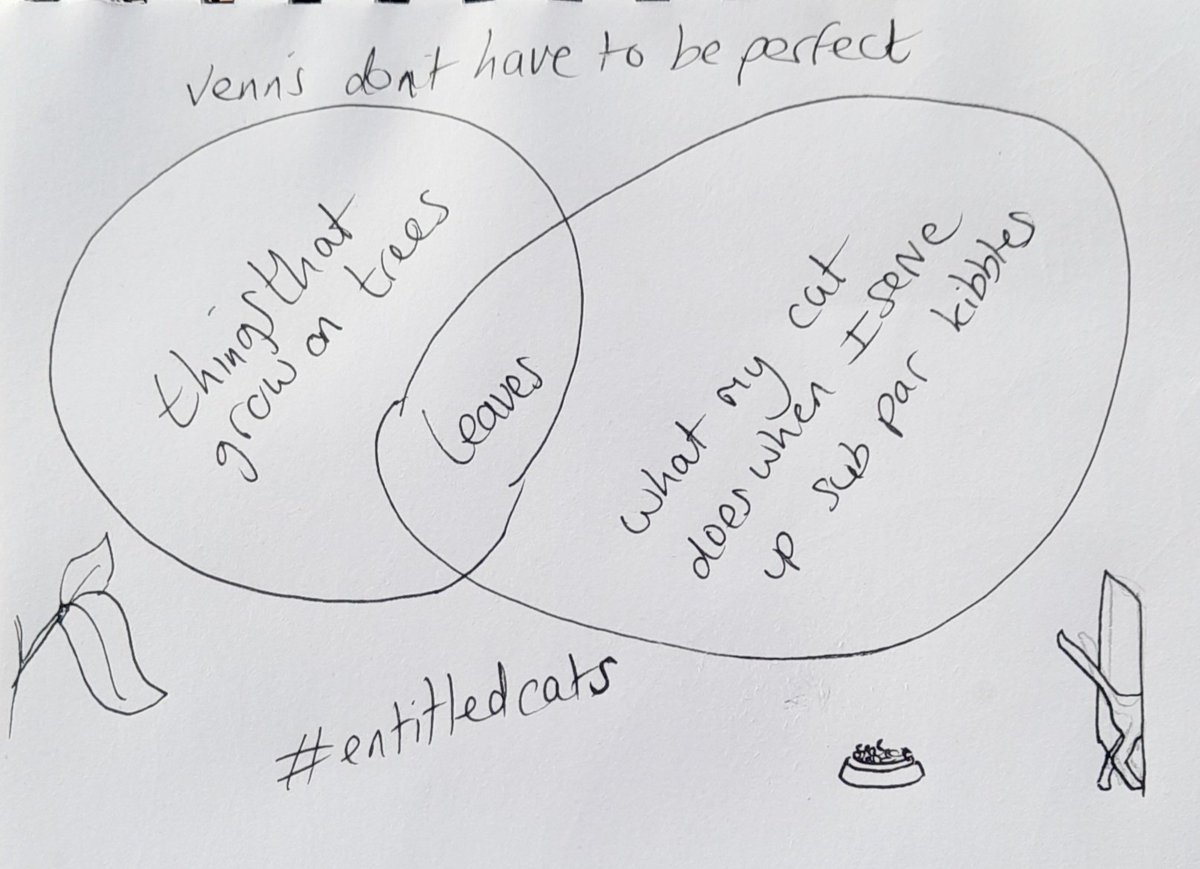 venn's don't have to be perfect
things that
grow on trees
leaves
what my cat
does when I serve
up sub par kibbles
#entitledcats